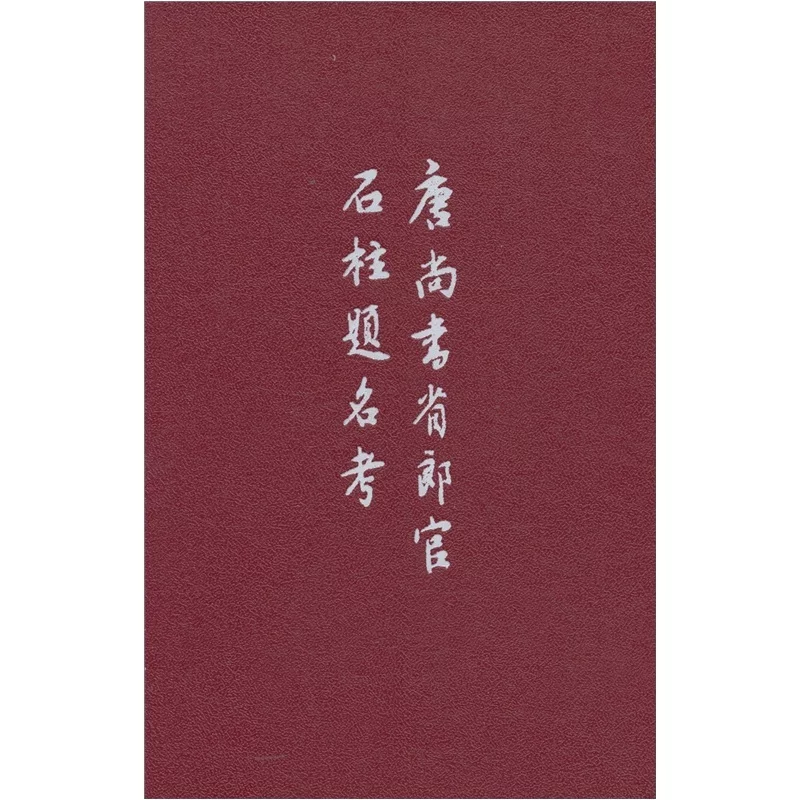 唐尚书省郎官
石柱題名考